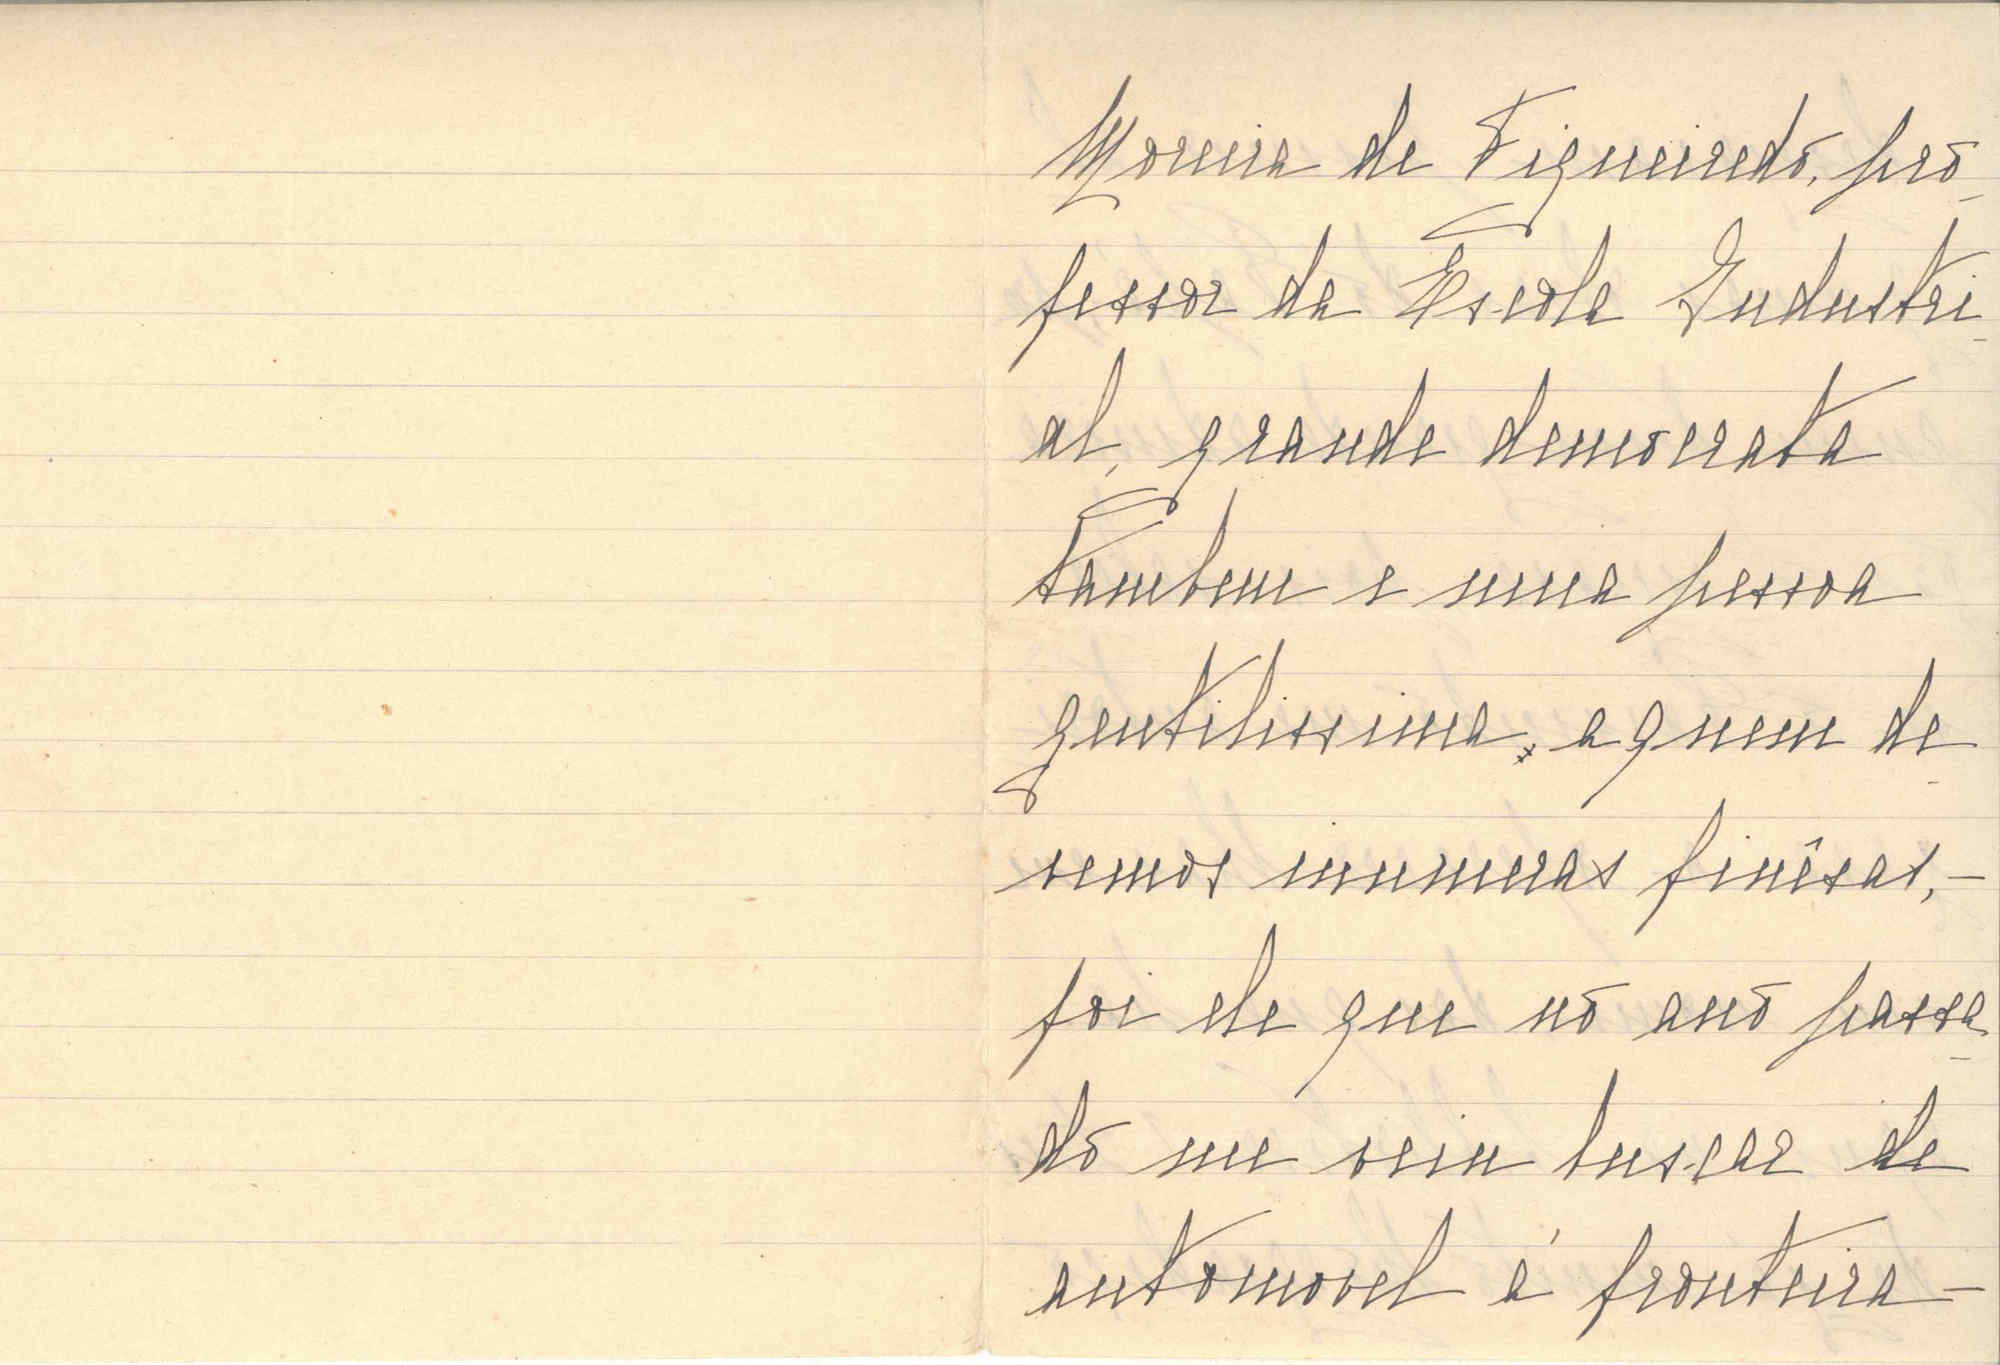 Moreira de Figueiredo, pro-
fessor da Escola Industri-
al, grande democrata
tambem e uma pessoa
gentilissima, a quem de-
vemos inumeras finêsas, -
foi ele que no ano passa-
do me veiu buscar de
automovel á fronteira -